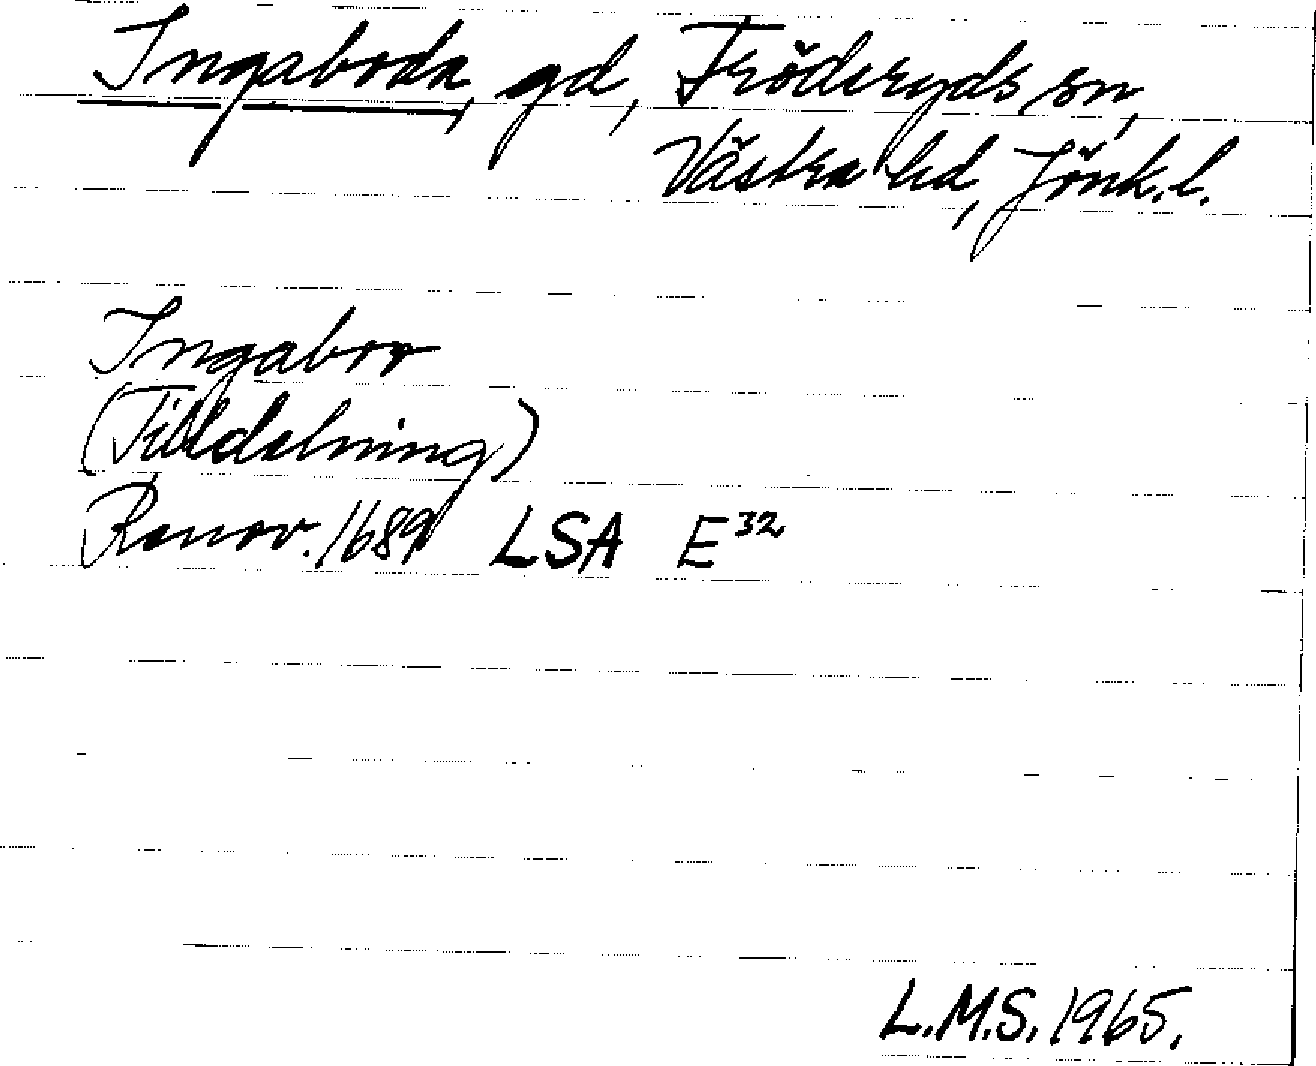 Ingaboda, gd, Fröderyds sn,
Västra hd, Jönk.l.
Ingaboo
(Tilldelning)
Renov. 1689 LSA E32
L.M.S. 1965.